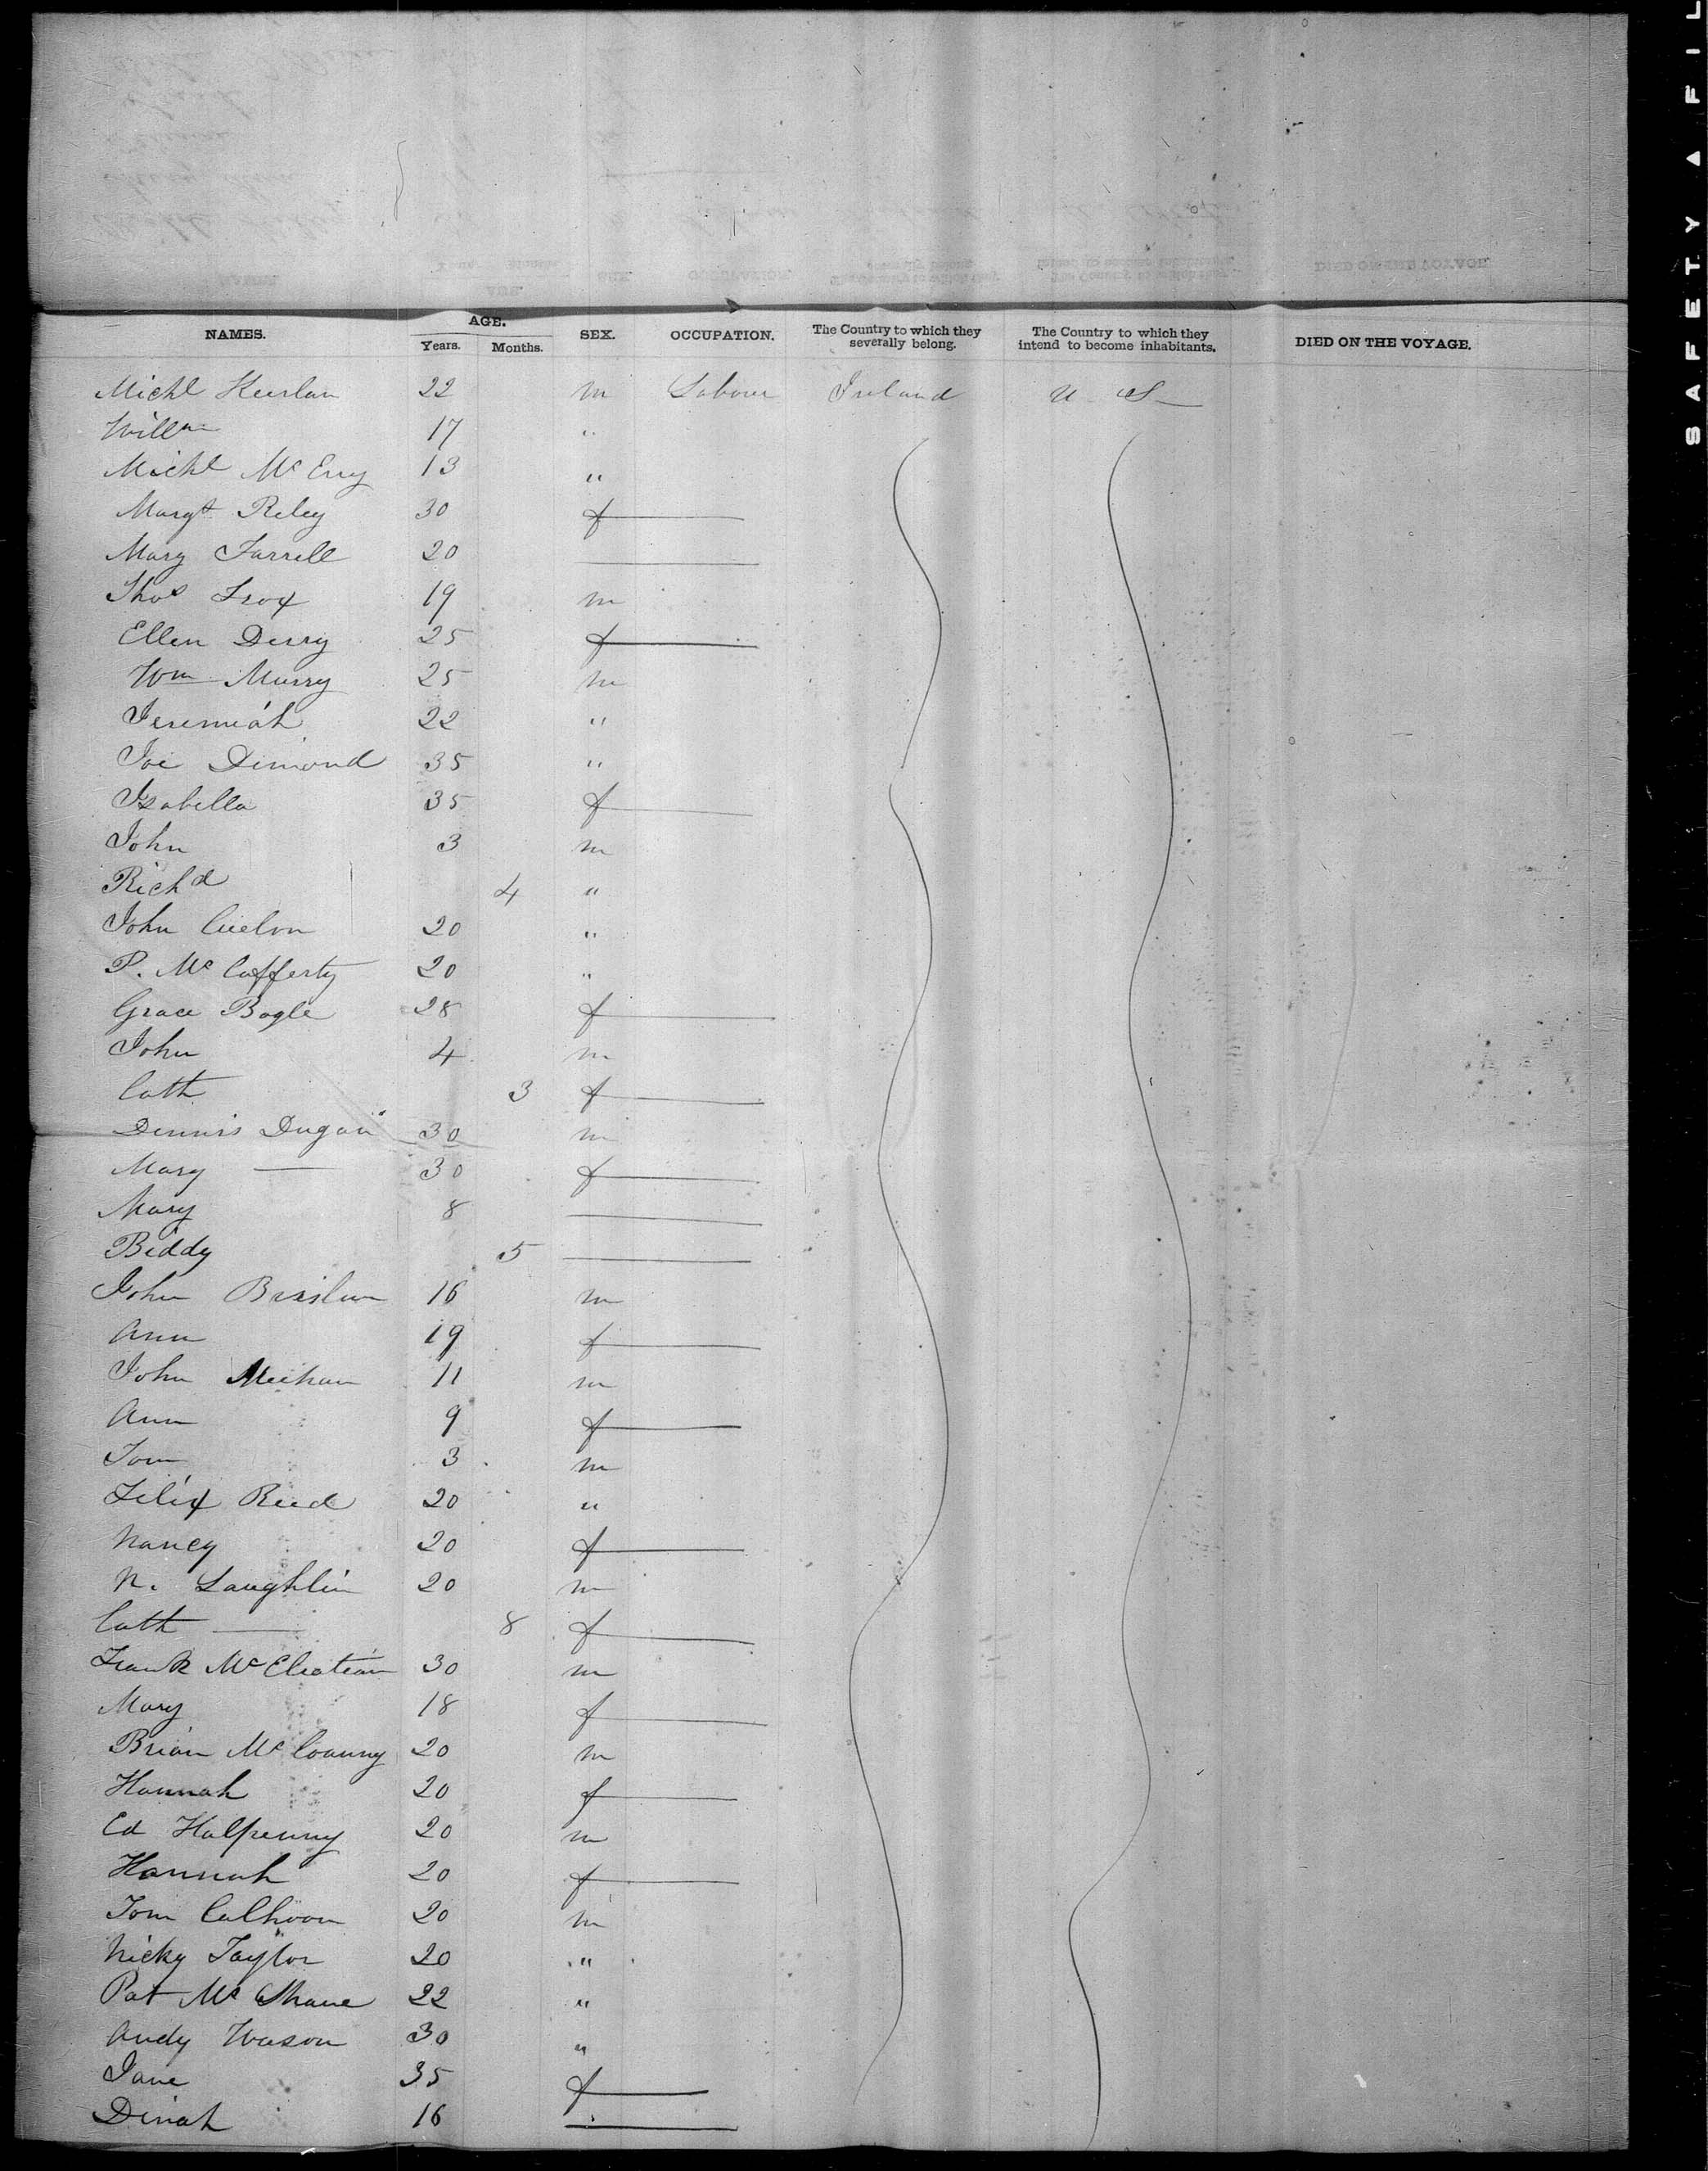 SAFETY A FIL
NAMES. AGE. Years. Months. SEX. OCCUPATION. The Country to which they severally belong. The Country to which they intend to become inhabitants. DIED ON THE VOYAGE.
Michl 22 m Labour Ireland U S
Willm 17 "
Michl Mc Eny 13 "
Margt Riley 30 f
Mary Farrell 20
Thos Troy 19 m
Ellen Derry 25 f
Wm Murry 25 m
Jeremiah 22 "
Joe Dimond 35 "
Isabella 35 f
John 3 m
Richd 4 "
John 20 "
P. Mc Cafferty 20 "
Grace Bogle 28 f
John 4 m
Cath 3 f
Dennis Dugan 30 m
Mary — 30 f
Mary 8
Biddy 5
John 16 m
Ann 19 f
John Meehan 11 m
Ann 9 f
Tom 3 m
Felix Reed 20 "
Nancy 20 f
N. Laughlin 20 m
Cath — 8 f
Frank 30 m
Mary 18 f
Brian Mc 20 m
Hannah 20 f
Ed Halpenny 20 m
Hannah 20 f
Tom Calhoon 20 m
Nicky Taylor 20 "
Pat Mc Shane 22 "
Andy Wason 30 "
Jane 35 f
Dinah 16